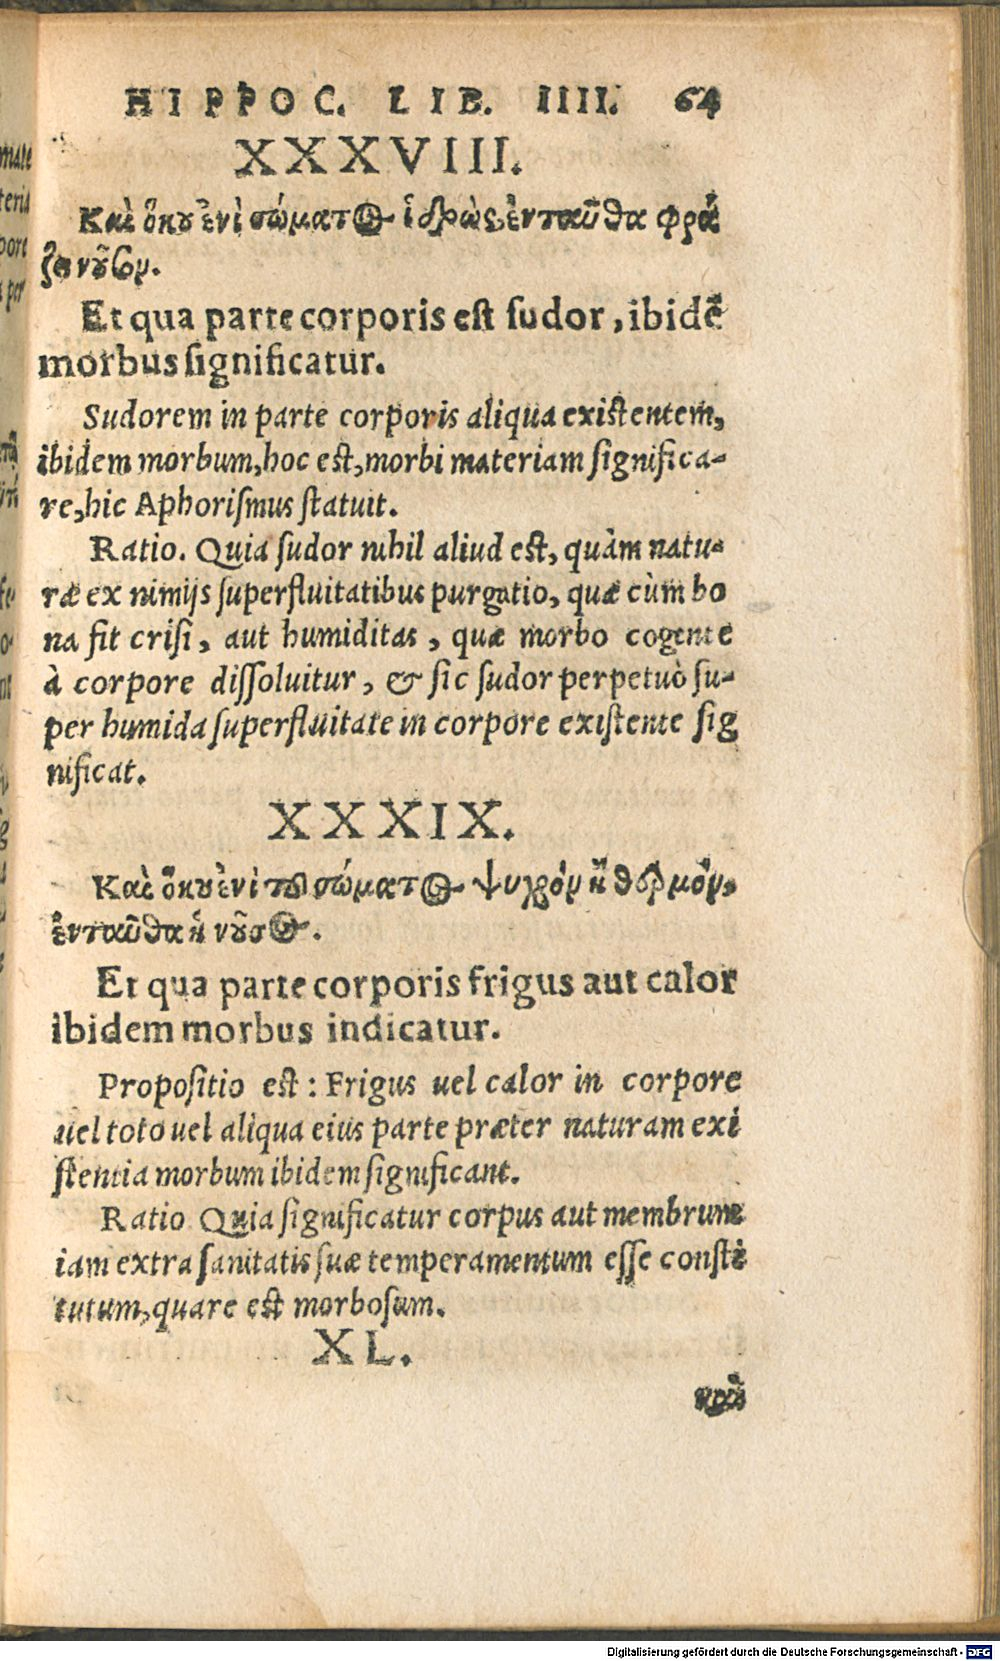 HIPPOC. LIB. IIII. 64
XXXVIII.
Καὶ ὅκου ἔνι σώματος ἱδρὼς, ἐνταῦθα φρά
ζει νοῦσον.
Et qua parte corporis est sudor, ibidē
morbus significatur.
Sudorem in parte corporis aliqua existentem,
ibidem morbum, hoc est, morbi materiam significa-
re, hic Aphorismus statuit.
Ratio. Quia sudor nihil aliud est, quàm natu-
ræ ex nimijs superfluitatibus purgatio, quæ cùm bo
na fit crisi, aut humiditas, quæ morbo cogente
à corpore dissoluitur, & sic sudor perpetuò su-
per humida superfluitate in corpore existente sig
nificat.
XXXIX.
Καὶ ὅκου ἔνι τοῦ σώματος ψυχρὸν ἢ θερμὸν,
ἐνταῦθα ἡ νοῦσος.
Et qua parte corporis frigus aut calor
ibidem morbus indicatur.
Propositio est: Frigus uel calor in corpore
uel toto uel aliqua eius parte præter naturam exi
stentia morbum ibidem significant.
Ratio Quia significatur corpus aut membrum
iam extra sanitatis suæ temperamentum esse consti
tutum, quare est morbosum.
XL.
καὶ
mate
teria
pore
per
Digitalisierung gefördert durch die Deutsche Forschungsgemeinschaft - DFG